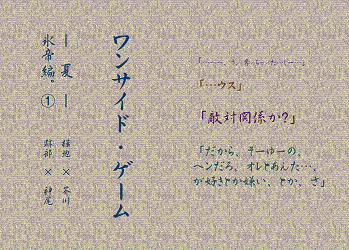 ワンサイド・ゲーム
― 夏 ―
氷帝編。①
×
跡部 × 神尾
「…ウス」
「敵対関係か?」
「だから、そーゆーの、
ヘンだろ、オレとあんた…、
が好きとか嫌い、とか、さ」